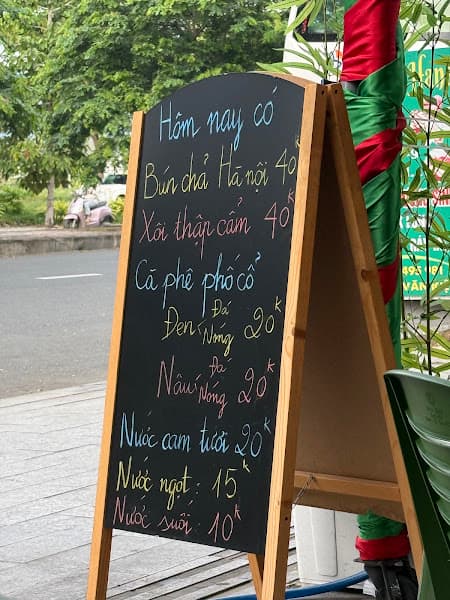 Hôm nay có
Bún chả Hà nội 40k
Xôi thập cẩm 40k
Cà phê phố cổ
Đen Đá Nóng 20k
Nâu Đá Nóng 20k
Nước cam tươi 20k
Nước ngọt : 15k
Nước suối : 10k